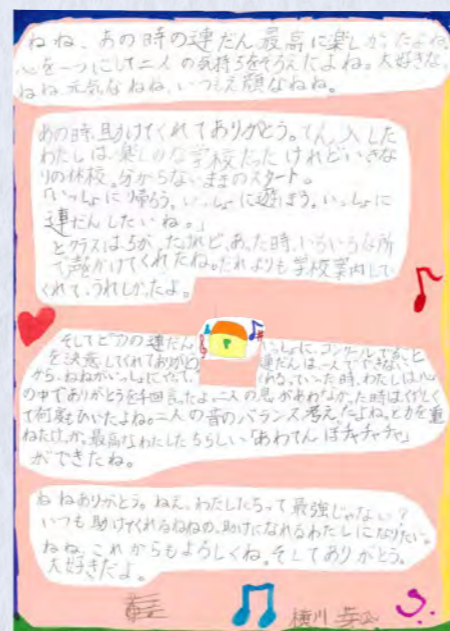 ねね、あの時の連だん最高に楽しかったよね。
心を一つにして二人の気持ちをそろえたよね。大好きな
ねね、元気なねね、いつもえ顔なねね。
あの時、助けてくれてありがとう。てん入した
わたしは楽しみな学校だったけれどいきな
りの休校。分からないままのスタート。
「いっしょに帰ろう。いっしょに遊ぼう。いっしょに
連だんしたいね。」
とクラスはちがったけれど、あった時、いろいろな所
で声をかけてくれたね。だれよりも学校案内して
くれて、うれしかったよ。
そしてピアノの連だん
を決意してくれてありがとう
いっしょに、コンクールでると
連だんは一人でできない
から、ねねがいっしょにやって
くれるっていった時、わたしは心
の中でありがとうを千回言ったよ。二人の息があわなかった時はくやしく
て何度もひいたよね。二人の音のバランス、考えたよね。と力を重
ねたけっか、最高なわたしたちらしい「あわてんぼチャチャチャ」
ができたね。
ねねありがとう。ねえ、わたしたちって最強じゃない?
いつも助けてくれるねねの、助けになれるわたしになりたい。
ねね、これからもよろしくね。そしてありがとう。
大好きだよ。